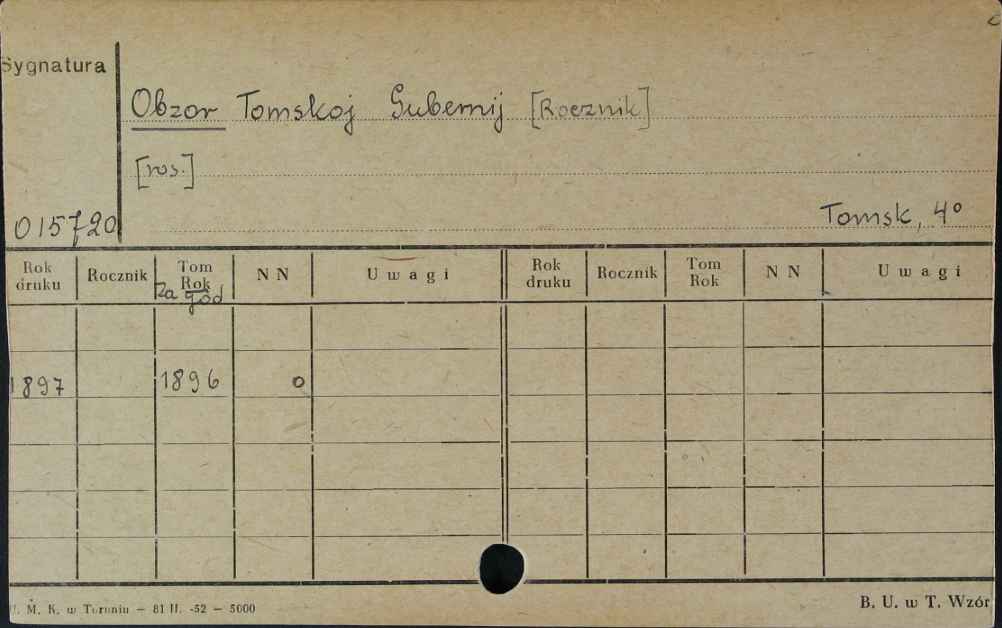 Sygnatura
Obzor Tomskoj Gubernij [Rocznik]
[ros.]
015720
Tomsk, 4°
Rok druku Rocznik Tom Rok NN Uwagi Rok druku Rocznik Tom Rok NN Uwagi
Za god
1897 1896 0
U. M. K. w Toruniu — 81 II. -52 — 5000
B. U. w T. Wzór